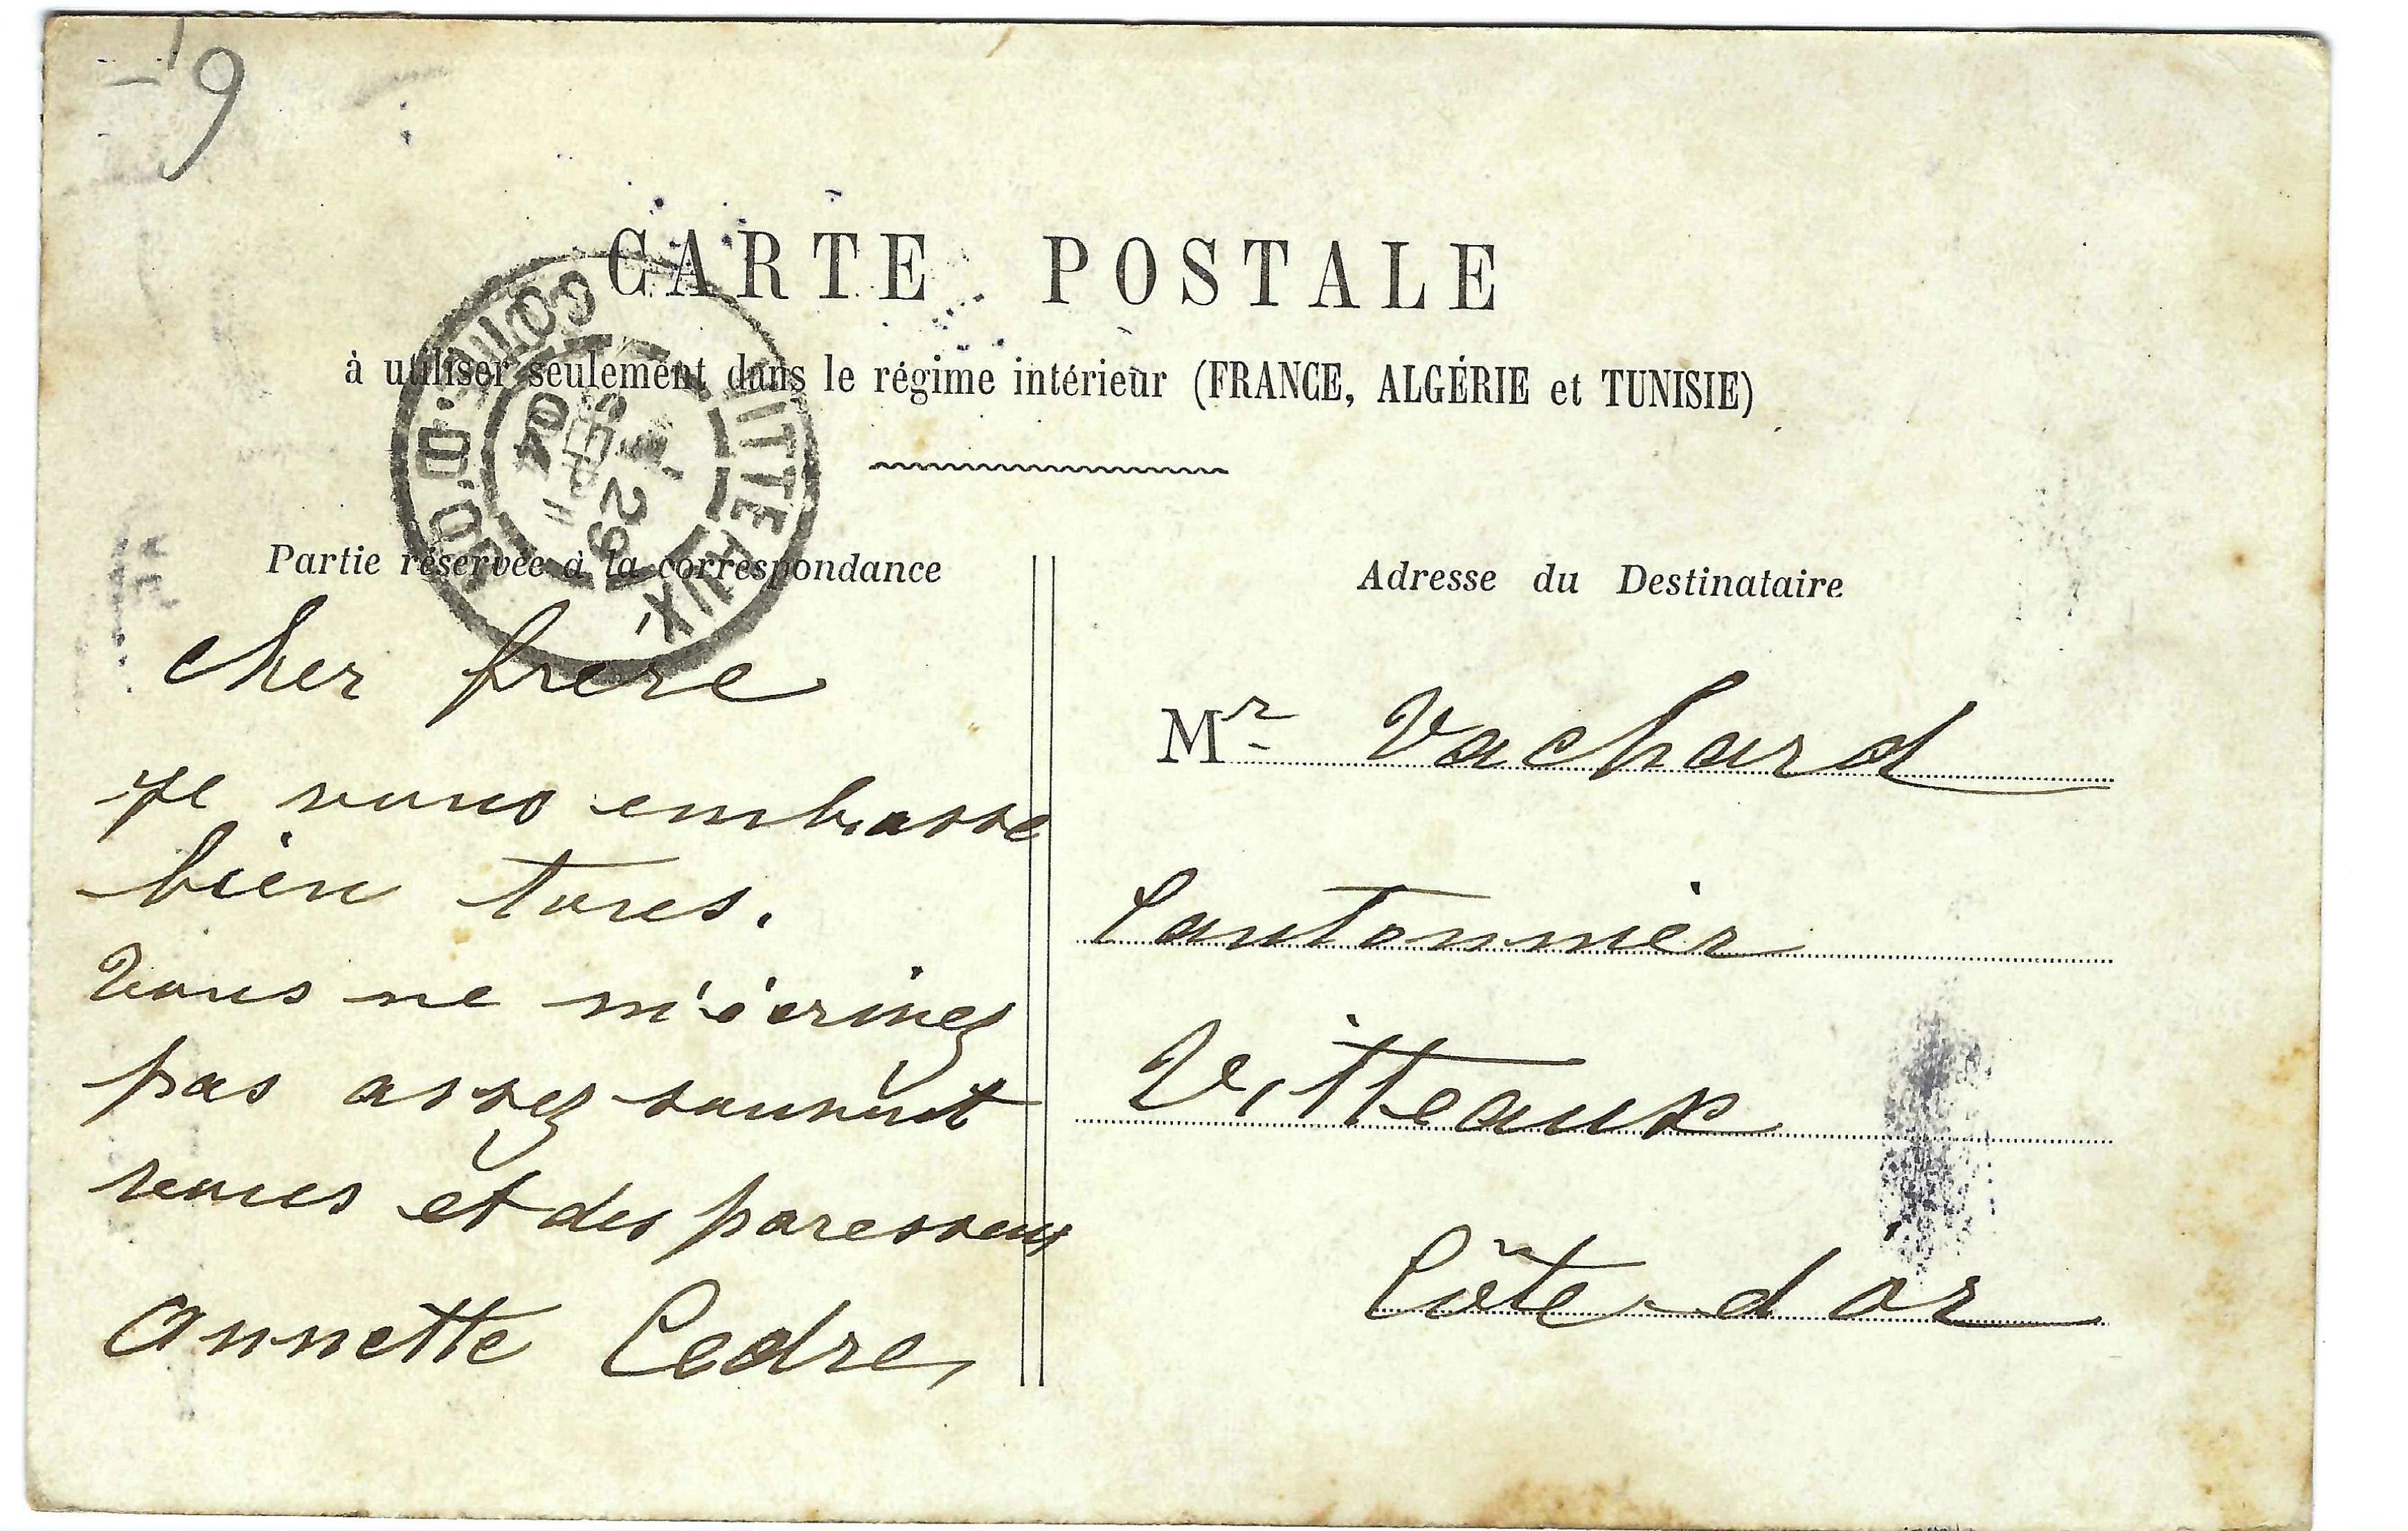 19
CARTE POSTALE
à utiliser seulement dans le régime intérieur (FRANCE, ALGÉRIE et TUNISIE)
VITTEAUX
CÔTE-D'OR
29
SEPT
04
Partie réservée à la correspondance
cher frère
Je vous embrasse
bien tous.
Vous ne m'écrivez
pas assez souvent
vous et des paresseux
Annette Cedre,
Adresse du Destinataire
Mr Vachard
Cantonnier
Vitteaux
Côte d'or